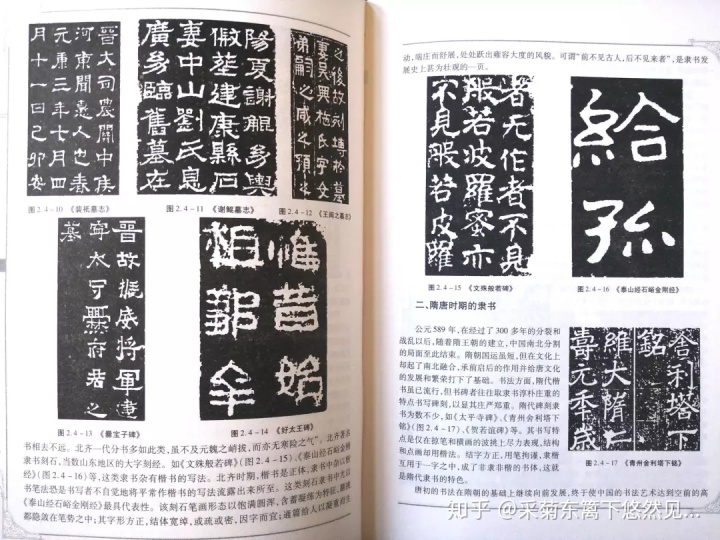 晋大司農關中侯
河東聞憙人也
元康三年七月四
日十一日己卯安
陽夏謝鯤字㓜輿
假葬建康縣石
妻中山劉氏息
廣舊墓在
图2.4-10 《裴祗墓志》
图2.4-11 《谢鲲墓志》
图2.4-12 《王闽之墓志》
晉故振威將軍建
寧太守爨府君之
墓
惟昔始
祖鄒牟
图2.4-13 《爨宝子碑》
图2.4-14 《好太王碑》
北齐一代分书多如此类,虽不及元魏之峭拔,而亦无寒险之气”。北齐著名
隶书刻石,当数山东地区的大字刻经。如《文殊般若碑》(图2.4-15)、《泰山经石峪金刚
经》(图2.4-16)等,这类隶书杂有楷书的写法。北齐时期,楷书是正体,隶书中杂以楷
书笔法恐是书写者不自觉地将平常作楷书的写法流露出来所至。这类刻石隶书中尤以
《泰山经石峪金刚经》最具代表性。该刻石笔画形态以饱满圆浑,含蓄凝练为特征,
都隐敛在笔势之中;其字形方正,结体宽绰,或疏或密,因字而宜;通篇给人以凝重
动,端庄而舒展,处处跃出雍容大度的风貌。可谓“前不见古人,后不见来者”,是隶书发
展史上甚为壮观的一页。
者无作者不見
般若波羅蜜亦
不見般若波羅
給
孫
图2.4-15 《文殊般若碑》
图2.4-16 《泰山经石峪金刚经》
二、隋唐时期的隶书
公元589年,在经过了300多年的分裂和
战乱以后,随着隋王朝的建立,中国南北分割
的局面至此结束。隋朝国运虽短,但在文化上
却起了南北融合,承前启后的作用并给唐文化
的发展和繁荣打下了基础。书法方面,隋代楷
书虽已流行,但书碑者往往取隶书淳朴庄重的
特点书写碑刻,以显其庄严郑重。隋代碑刻隶
书为数不少,如《太平寺碑》、《青州舍利塔下
铭》(图2.4-17)、《贺若谊碑》等。其书写特
点是仅在掠笔和横画的波挑上尽力表现,结构
和点画却用楷法。结字方正,用笔拘谨,隶楷
互用于一字之中,成了非隶非楷的书体,这就
是隋代隶书的特色。
舍利塔下
銘
維大隋仁
壽元年歲
图2.4-17 《青州舍利塔下铭》
唐初的书法在隋朝的基础上继续向前发展,终于使中国的书法艺术达到空前的高
知乎 @采菊东篱下悠然见...